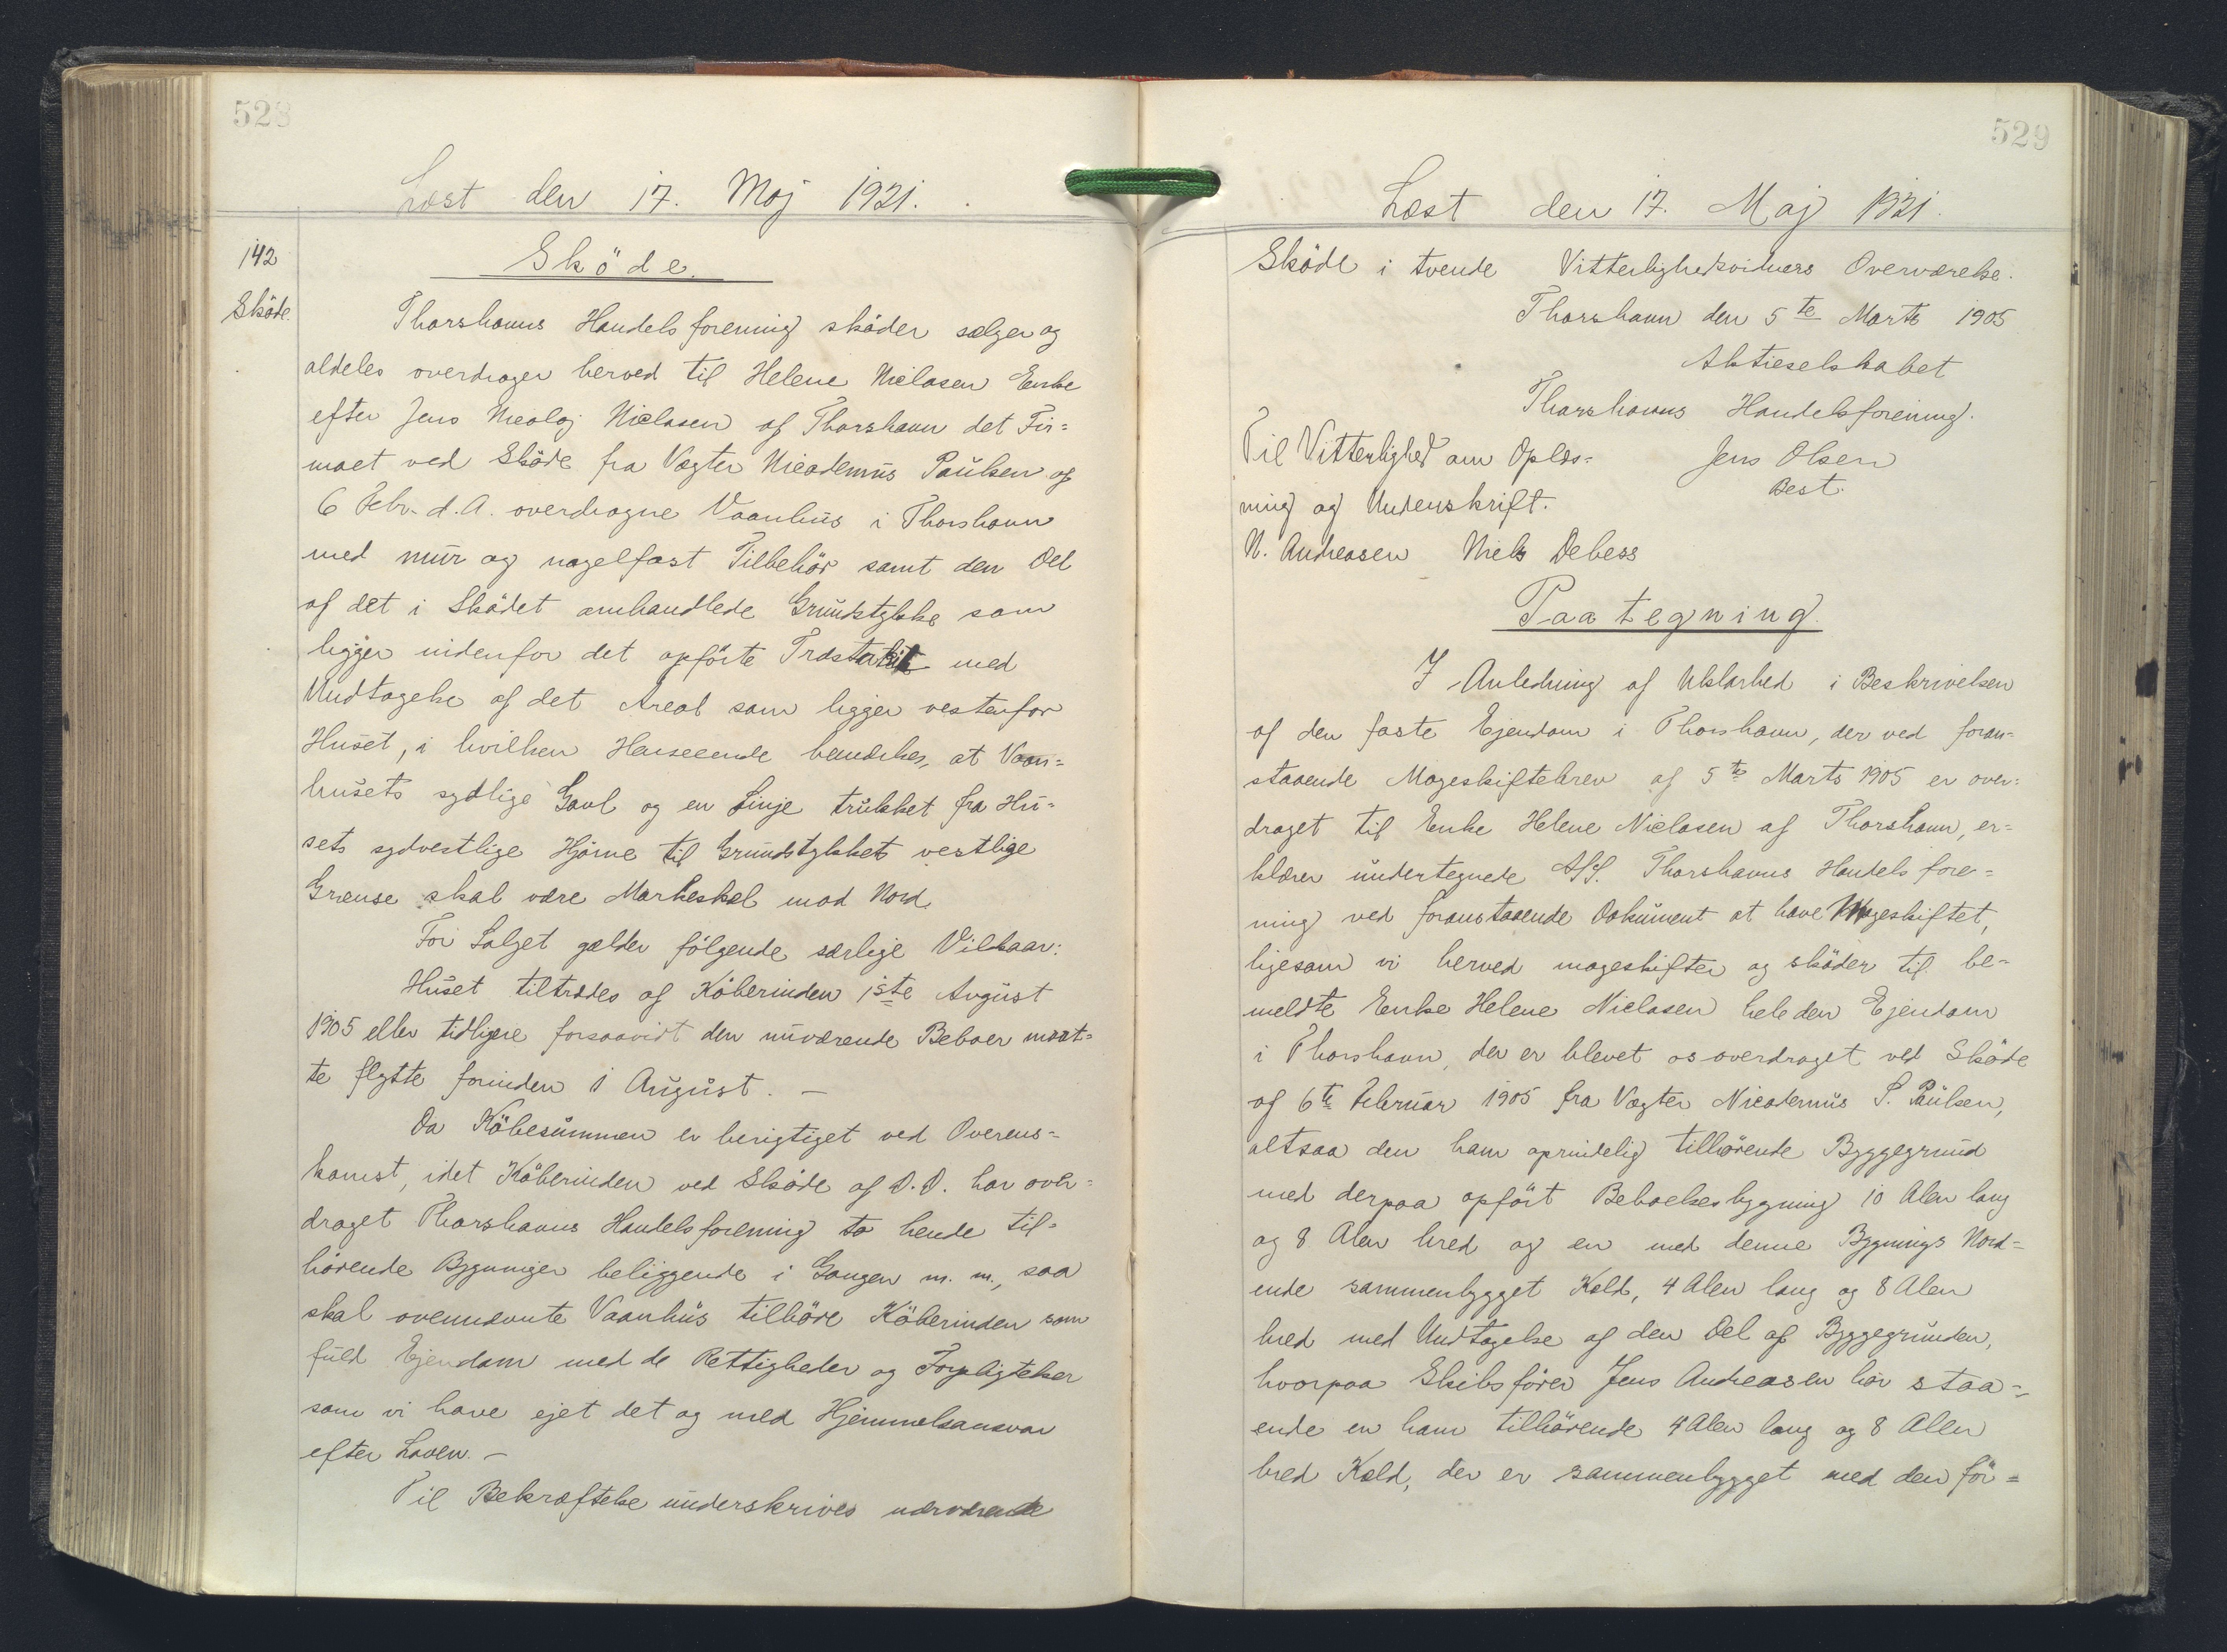 528
Læst den 17. Maj 1921.
142
Sköde.
Sköde.
Thorshavns Handelsforening sköder sælger og
aldeles overdrager herved til Helene Nielasen Enke
efter Jens Nicolaj Nielasen af Thorshavn det Fir=
maet ved Sköde fra Vægter Nicodemus Paulsen af
6 Febr. d. A. overdragne Vaanhus i Thorshavn
med mur og nagelfast Tilbehör samt den Del
af det i Sködet omhandlede Grundstykke som
ligger indenfor det opförte Træstakit med
Undtagelse af det Areal som ligger vestenfor
Huset, i hvilken Henseende bemærkes, at Vaan=
husets sydlige Gavl og en Linje trukket fra Hu=
sets sydvestlige Hjörne til Grundstykkets vestlige
Grense skal være Markeskel mod Nord.
For Salget gælder fölgende særlige Vilkaar:
Huset tiltrædes af Köberinden 1ste August
1905 eller tidligere forsaavidt den nuværende Beboer maat=
te flytte forinden 1 August. —
Da Köbesummen er berigtiget ved Overens=
komst, idet Köberinden ved Sköde af D.D. har over=
draget Thorshavns Handelsforening to hende til=
hörende Bygninger beliggende i Gongen m. m., saa
skal ovennævnte Vaanhus tilhöre Köberinden som
fuld Ejendom med de Rettigheder og Forpligtelser
som vi have ejet det og med Hjemmelsansvar
efter Loven. —
Til Bekræftelse underskrives nærværende
529
Læst den 17. Maj 1921.
Sköde i tvende Vitterlighedsvidners Overværelse.
Thorshavn den 5te Marts 1905
Aktieselskabet
Thorshavns Handelsforening.
Til Vitterlighed om Oplæs= Jens Olsen
ning og Underskrift. Best.
N. Andreasen Niels Debess
Paategning.
I Anledning af Uklarhed i Beskrivelsen
af den faste Ejendom i Thorshavn, der ved foran=
staaende Mageskiftebrev af 5te Marts 1905 er over=
draget til Enke Helene Nielasen af Thorshavn, er=
klærer undertegnede A/S. Thorshavns Handelsfore=
ning ved foranstaaende Dokument at have Mageskiftet,
ligesom vi herved mageskifter og sköder til be=
meldte Enke Helene Nielasen hele den Ejendom
i Thorshavn, der er blevet os overdraget ved Sköde
af 6te Februar 1905 fra Vægter Nicodemus S. Paulsen,
altsaa den ham oprindelig tilhörende Byggegrund
med derpaa opfört Beboelsesbygning 10 Alen lang
og 8 Alen bred og en med denne Bygnings Nord=
ende sammenbygget Kold, 4 Alen lang og 8 Alen
bred med Undtagelse af den Del af Byggegrunden,
hvorpaa Skibsförer Jens Andreasen har staa=
ende en ham tilhörende 4 Alen lang og 8 Alen
bred Kold, der er sammenbygget med den för=